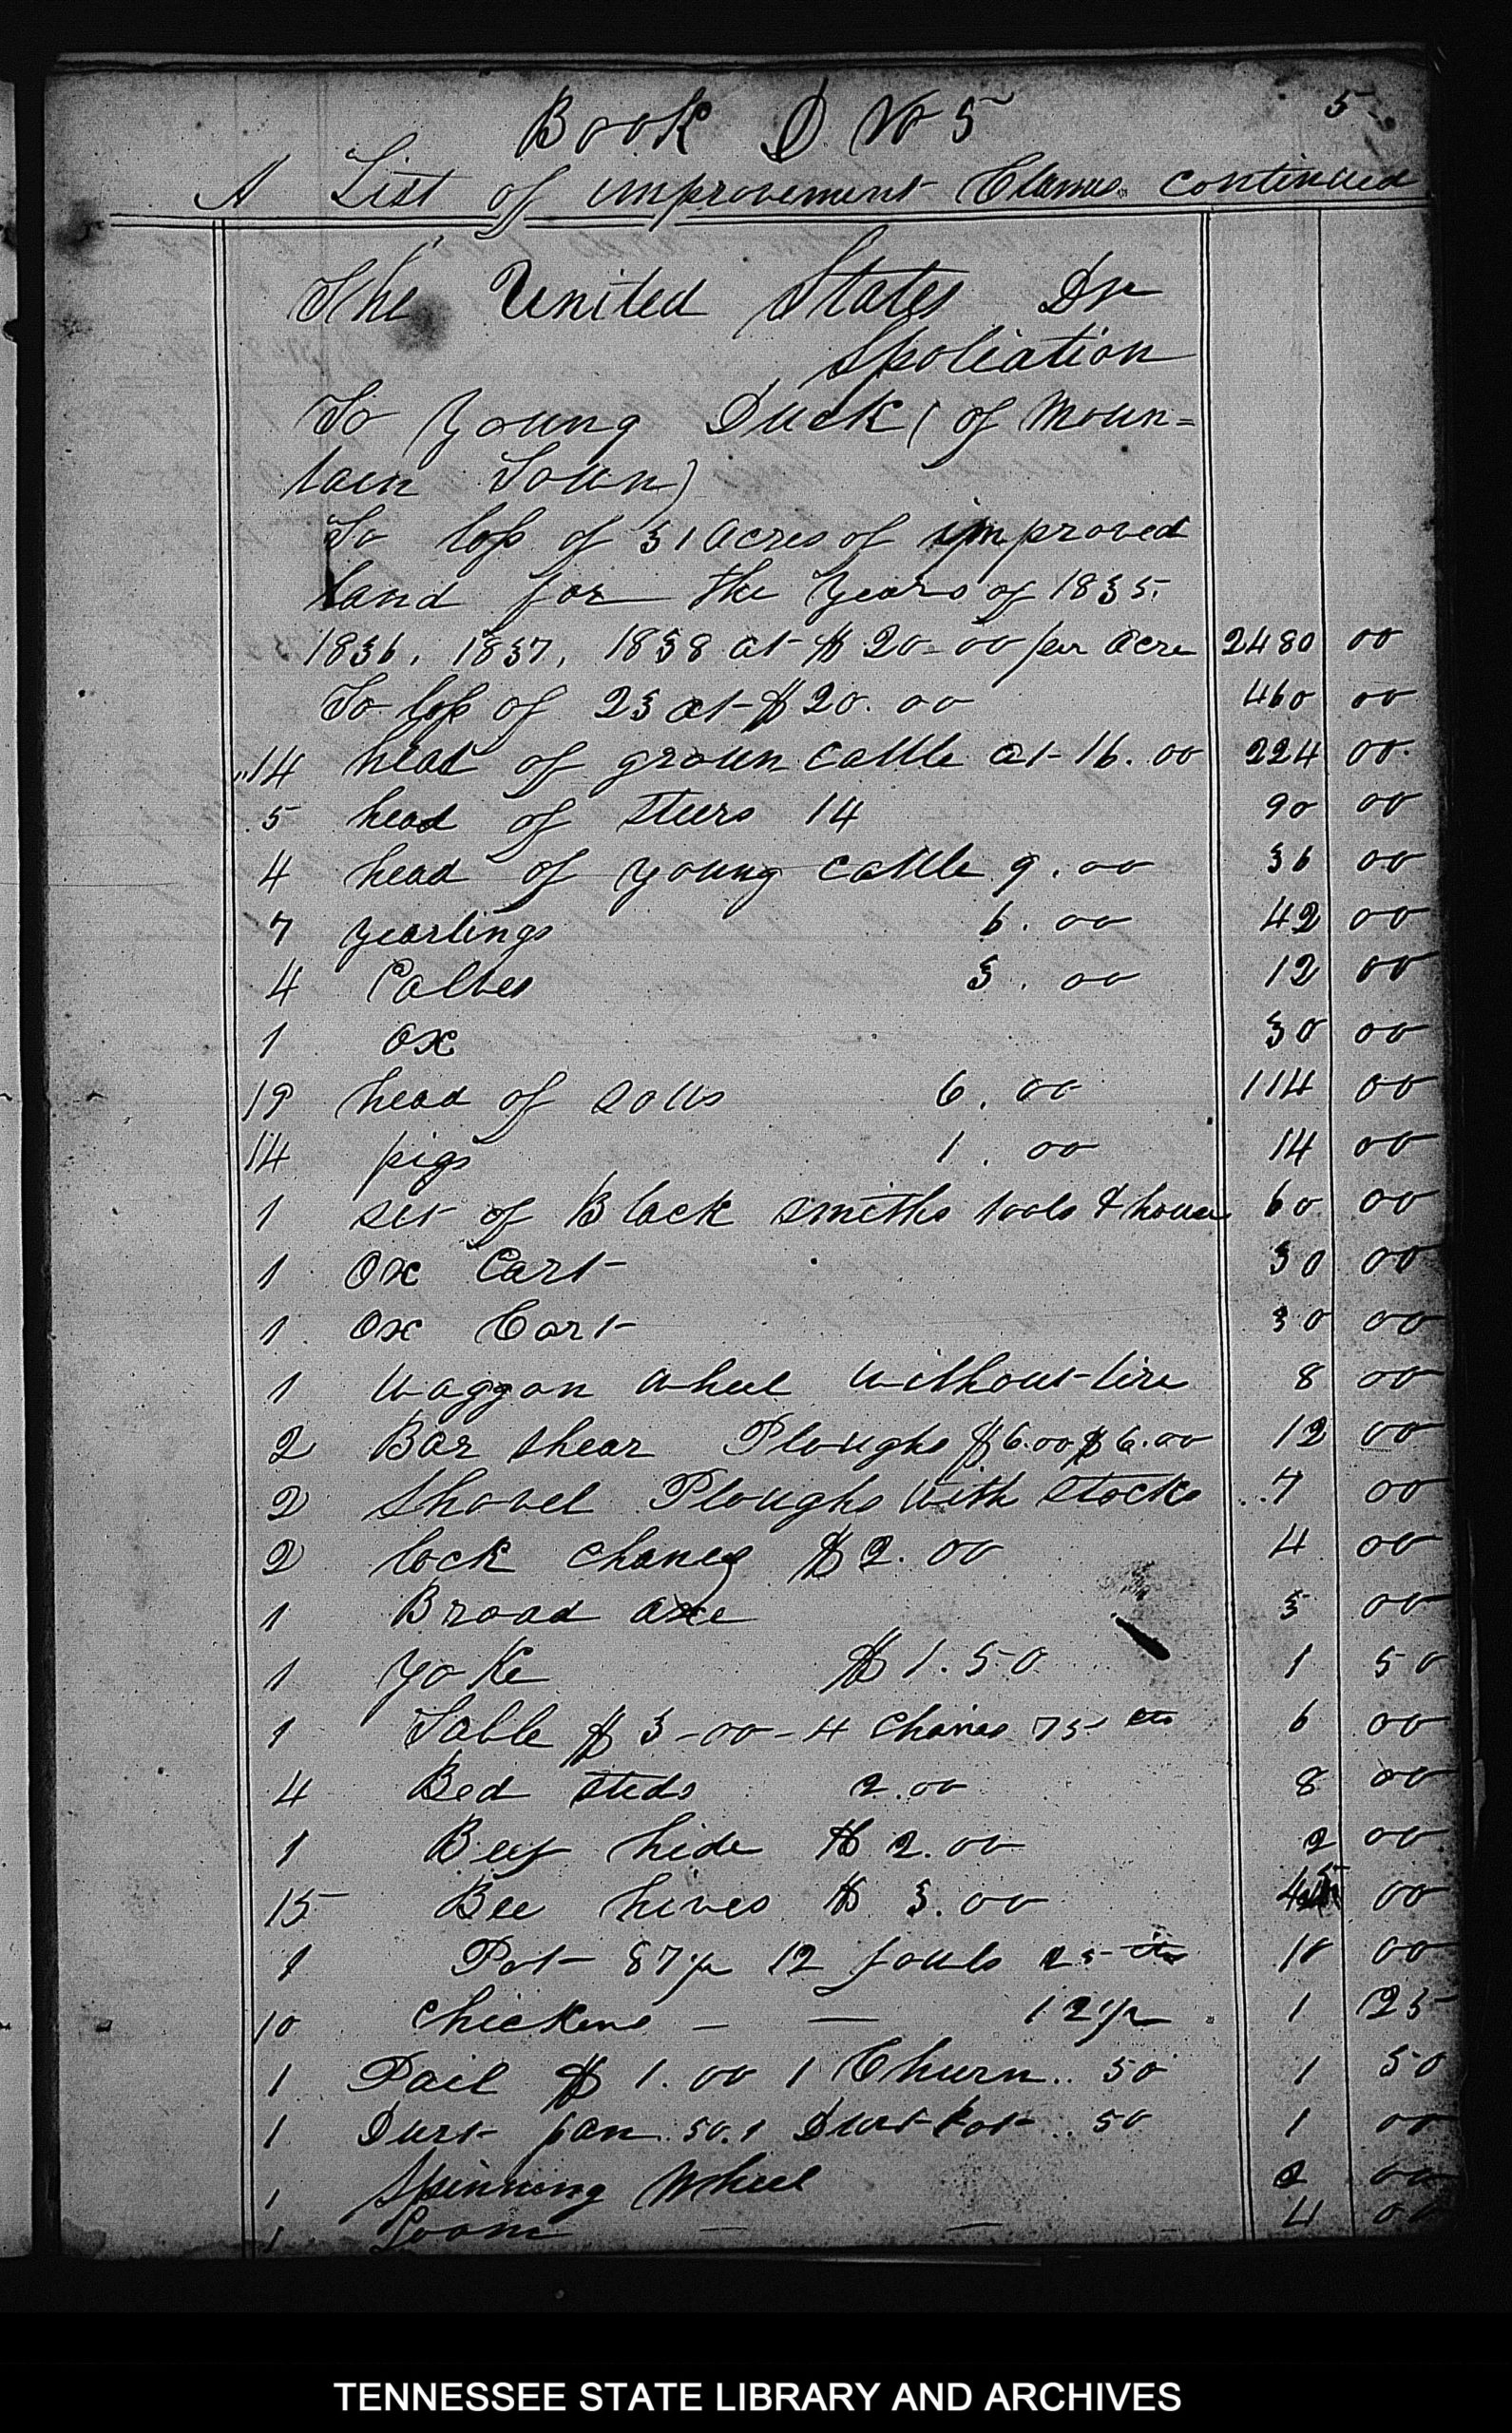 5
Book D. No 5
A List of improvement Claims continued
The United States Dr
Spoliation
To Young Duck (of Moun=
tain Town)
To loss of 31 acres of improved
land for the years of 1835.
1836, 1837, 1838 at $20.00 per acre 2480 00
To loss of 23 at $20.00 460 00
14 head of grown cattle at 16.00 224 00
5 head of steers 14 90 00
4 head of young cattle 9.00 36 00
7 yearlings 6.00 42 00
4 Calves 3.00 12 00
1 Ox 30 00
19 head of 6.00 114 00
14 pigs 1.00 14 00
1 set of Black smiths tools & house 60 00
1 Ox Cart 30 00
1 Ox Cart 30 00
1 Waggon wheel without tire 8 00
2 Bar shear Ploughs $6.00 $6.00 12 00
2 Shovel Ploughs with stocks 7 00
2 lock chanes $2.00 4 00
1 Broad axe 3 00
1 Yoke $1.50 1 50
1 Table $3-00-4 Chaires 75 cts 6 00
4 Bed steds 2.00 8 00
1 Beef hide $2.00 2 00
15 Bee hives $3.00 45 00
1 Pot 87½ 12 fouls 25 cts 00
10 Chickens — — 12½ 1 25
1 Pail $1.00 1 Churn .. 50 1 50
1 Durt pan .50. 1 Durt pot .. 50 1 00
1 Spinning Wheel 2 00
1 Loom — — 4 00
TENNESSEE STATE LIBRARY AND ARCHIVES